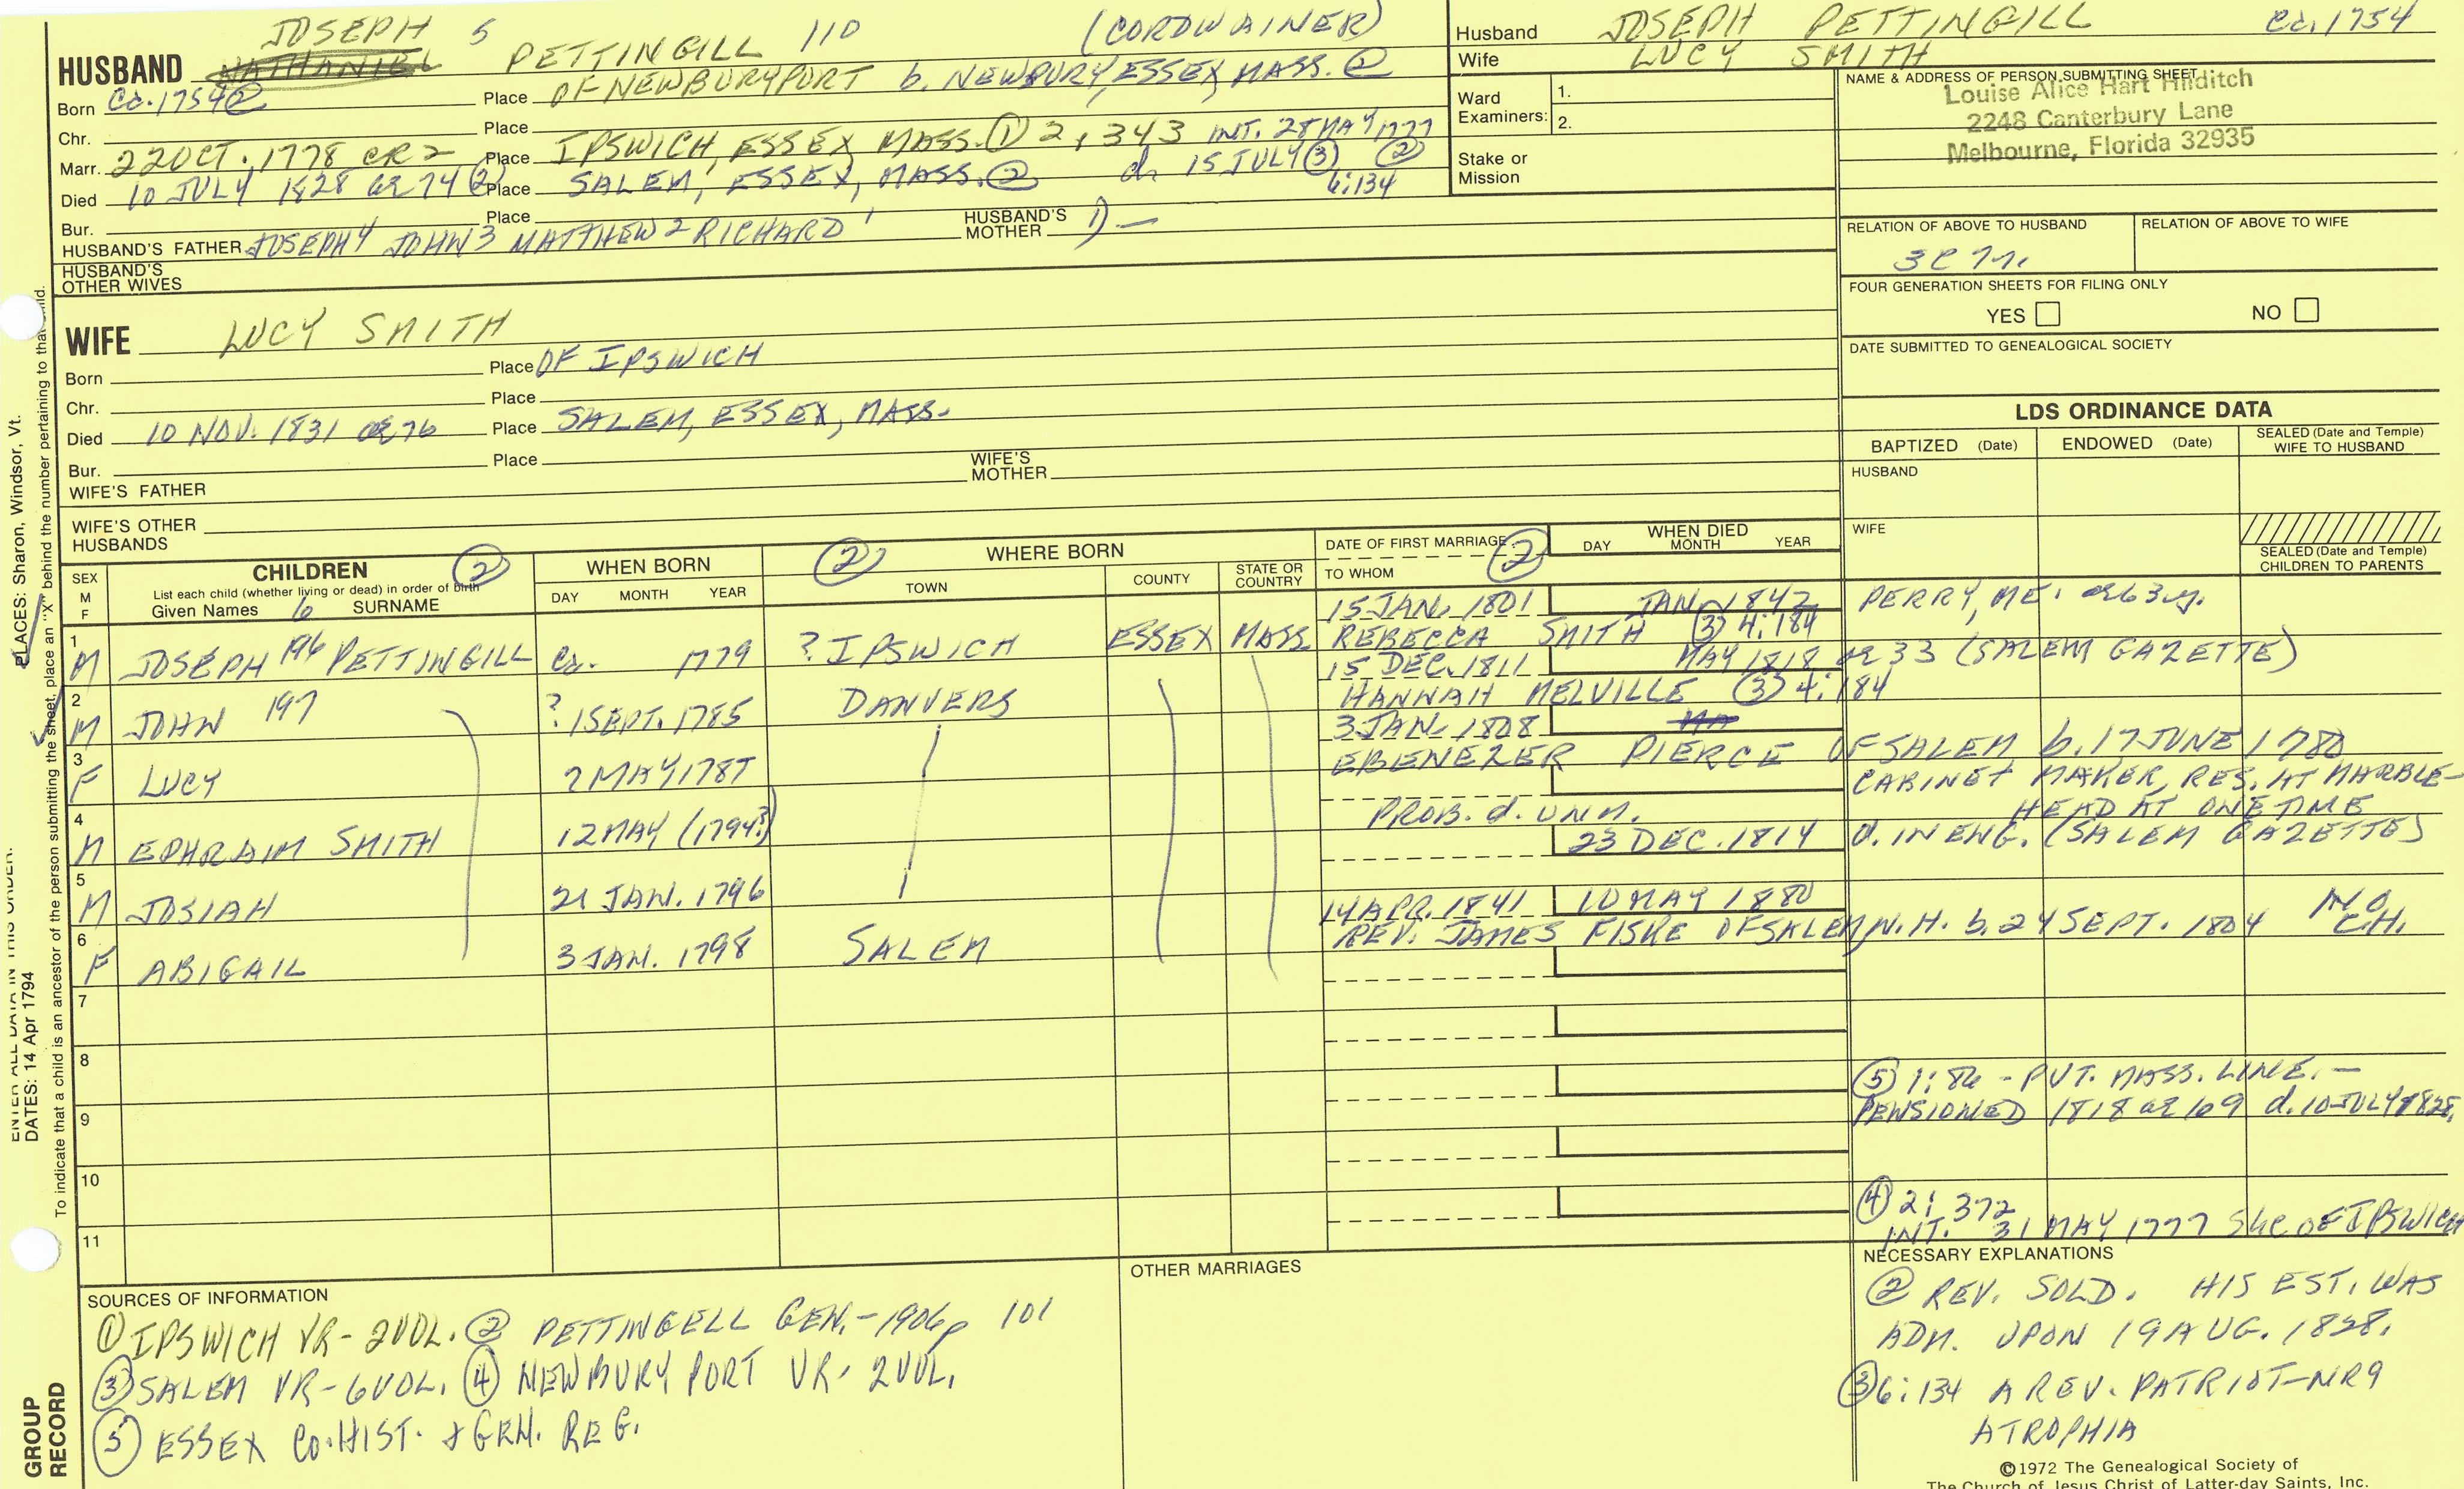 JOSEPH 5 PETTINGILL 110 (CORDWAINER)
HUSBAND NATHANIEL
Born Ca. 1754 ② Place OF NEWBURYPORT b. NEWBURY, ESSEX, MASS. ②
Chr. Place
Marr. 22 OCT. 1778 CR2 Place IPSWICH, ESSEX, MASS. ① 2, 343 INT. 28 MAY 1777 ②
Died 10 JULY 1828 ae 74 ② Place SALEM, ESSEX, MASS. ② d. 15 JULY ③ 6:134
Bur. Place
HUSBAND'S FATHER JOSEPH 4 JOHN 3 MATTHEW 2 RICHARD 1 HUSBAND'S MOTHER 1) —
HUSBAND'S OTHER WIVES
Husband JOSEPH PETTINGILL Ca. 1754
Wife LUCY SMITH
Ward Examiners: 1.
2.
Stake or Mission
NAME & ADDRESS OF PERSON SUBMITTING SHEET
Louise Alice Hart Hilditch
2248 Canterbury Lane
Melbourne, Florida 32935
RELATION OF ABOVE TO HUSBAND RELATION OF ABOVE TO WIFE
FOUR GENERATION SHEETS FOR FILING ONLY
YES NO
DATE SUBMITTED TO GENEALOGICAL SOCIETY
WIFE LUCY SMITH
Born Place OF IPSWICH
Chr. Place
Died 10 NOV. 1831 ae 76 Place SALEM, ESSEX, MASS.
Bur. Place
WIFE'S FATHER WIFE'S MOTHER
WIFE'S OTHER HUSBANDS
LDS ORDINANCE DATA
BAPTIZED (Date) ENDOWED (Date) SEALED (Date and Temple) WIFE TO HUSBAND
HUSBAND
WIFE
SEALED (Date and Temple) CHILDREN TO PARENTS
SEX M F CHILDREN ② WHEN BORN ② WHERE BORN DATE OF FIRST MARRIAGE ② WHEN DIED
List each child (whether living or dead) in order of birth DAY MONTH YEAR TOWN COUNTY STATE OR COUNTRY TO WHOM DAY MONTH YEAR
Given Names 6 SURNAME
1 M JOSEPH 196 PETTINGILL Ca. 1779 ? IPSWICH ESSEX MASS.
15 JAN. 1801 JAN. 1842 PERRY, ME. ae 63 y.
REBECCA SMITH ③ 4:184
2 M JOHN 197 ? 1 SEPT. 1785 DANVERS
15 DEC. 1811 MAY 1818 ae 33 (SALEM GAZETTE)
HANNAH MELVILLE ③ 4:184
3 F LUCY 2 MAY 1787
3 JAN. 1808
EBENEZER PIERCE OF SALEM b. 17 JUNE 1780
CABINET MAKER, RES. AT MARBLE-
HEAD AT ONE TIME
4 M EPHRAIM SMITH 12 MAY (1794?)
PROB. d. UNM.
5 M JOSIAH 21 JAN. 1796
23 DEC. 1814 d. IN ENG. (SALEM GAZETTE)
6 F ABIGAIL 3 JAN. 1798 SALEM
14 APR. 1841 10 MAY 1880
REV. JAMES FISKE OF SALEM, N.H. b. 24 SEPT. 1804 NO CH.
7
8
9
10
11
⑤ 1:86 - PVT. MASS. LINE. —
PENSIONED 1818 ae 69 d. 10 JULY 1828
④ 2: 372
INT. 31 MAY 1777 She OF IPSWICH
SOURCES OF INFORMATION
① IPSWICH VR- 2VOL. ② PETTINGELL GEN.-1906 p 101
③ SALEM VR-6VOL. ④ NEWBURYPORT VR- 2VOL.
⑤ ESSEX CO. HIST. & GEN. REG.
OTHER MARRIAGES
NECESSARY EXPLANATIONS
② REV. SOLD. HIS EST. WAS
ADM. UPON 19 AUG. 1828.
③ 6:134 A REV. PATRIOT-NR9
ATROPHIA
©1972 The Genealogical Society of
The Church of Jesus Christ of Latter-day Saints, Inc.
PLACES: Sharon, Windsor, Vt.
ENTER ALL DATA IN THIS ORDER:
DATES: 14 Apr 1794
To indicate that a child is an ancestor of the person submitting the sheet, place an "X" behind the number pertaining to that child.
GROUP RECORD